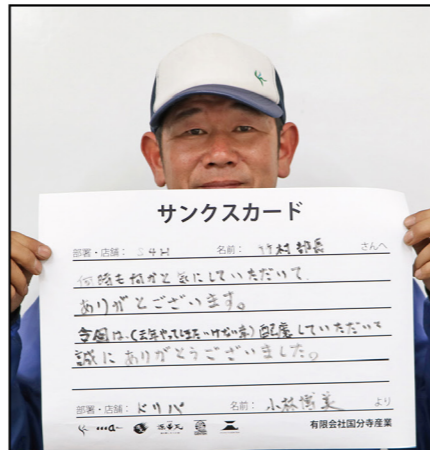 サンクスカード
部署・店舗: S4H 名前: 竹村部長 さんへ
何時も何かと気にしていただいて、
ありがとございます。
今回は、(去年やってしまたいけない事)配慮していただいて
誠にありがとうございました。
部署・店舗: ドリバ 名前: 小林博美 より
有限会社国分寺産業